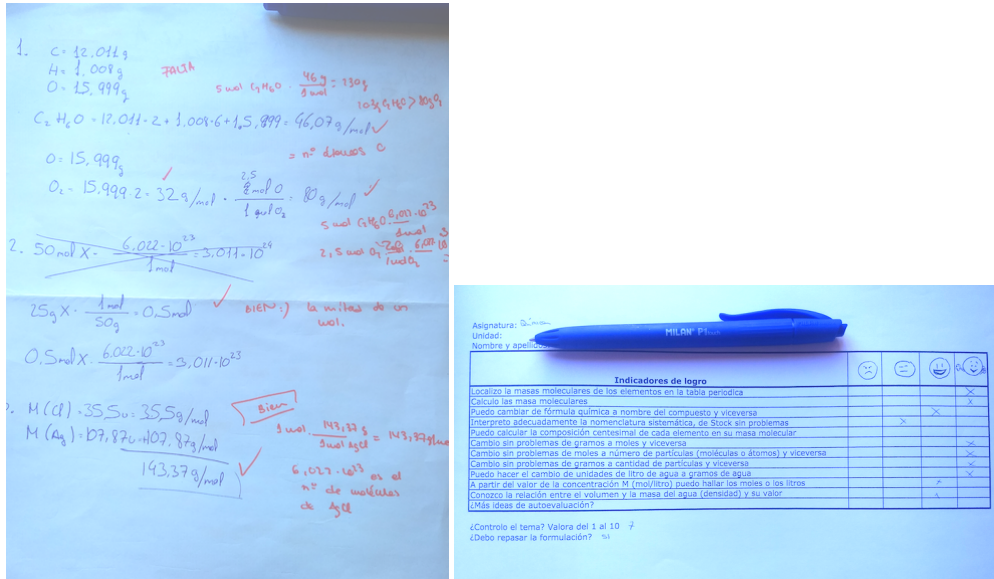 1. C = 12.011g
H = 1.008g
O = 15,999g
FALTA
5 mol C2H6O · 46 g / 1 mol = 230g
C2 H6O = 12.011·2 + 1.008·6 + 15,999 = 46,07 g/mol
O = 15,999g
= nº átomos O
O2 = 15,999·2 = 32 g/mol · 2,5 mol O / 1 mol O2 = 80g/mol
5 mol C2H6O · 6,022·10²³ / 1 mol
2. 50 mol X · 6.022·10²³ / 1 mol = 3,011·10²⁴
25g X · 1 mol / 50g = 0.5 mol
BIEN :) la mitad de un
mol.
0.5 mol X · 6.022·10²³ / 1 mol = 3,011·10²³
M (Cl) = 35,5u = 35,5g/mol
Bien
M (Ag) = 107,87u = 107,87g/mol
1 mol · 143,37 g / 1 mol AgCl = 143,37g
143,37g/mol
6,022·10²³ es el
nº de moléculas
de AgCl
Asignatura: Química
Unidad:
Nombre y apellidos
MILAN P1 touch
Indicadores de logro
Localizo la masas moleculares de los elementos en la tabla periodica X
Calculo las masa moleculares X
Puedo cambiar de fórmula química a nombre del compuesto y viceversa X
Interpreto adecuadamente la nomenclatura sistemática, de Stock sin problemas X
Puedo calcular la composición centesimal de cada elemento en su masa molecular
Cambio sin problemas de gramos a moles y viceversa X
Cambio sin problemas de moles a número de partículas (moléculas o átomos) y viceversa X
Cambio sin problemas de gramos a cantidad de partículas y viceversa X
Puedo hacer el cambio de unidades de litro de agua a gramos de agua X
A partir del valor de la concentración M (mol/litro) puedo hallar los moles o los litros
Conozco la relación entre el volumen y la masa del agua (densidad) y su valor
¿Más ideas de autoevaluación?
¿Controlo el tema? Valora del 1 al 10 7
¿Debo repasar la formulación? si